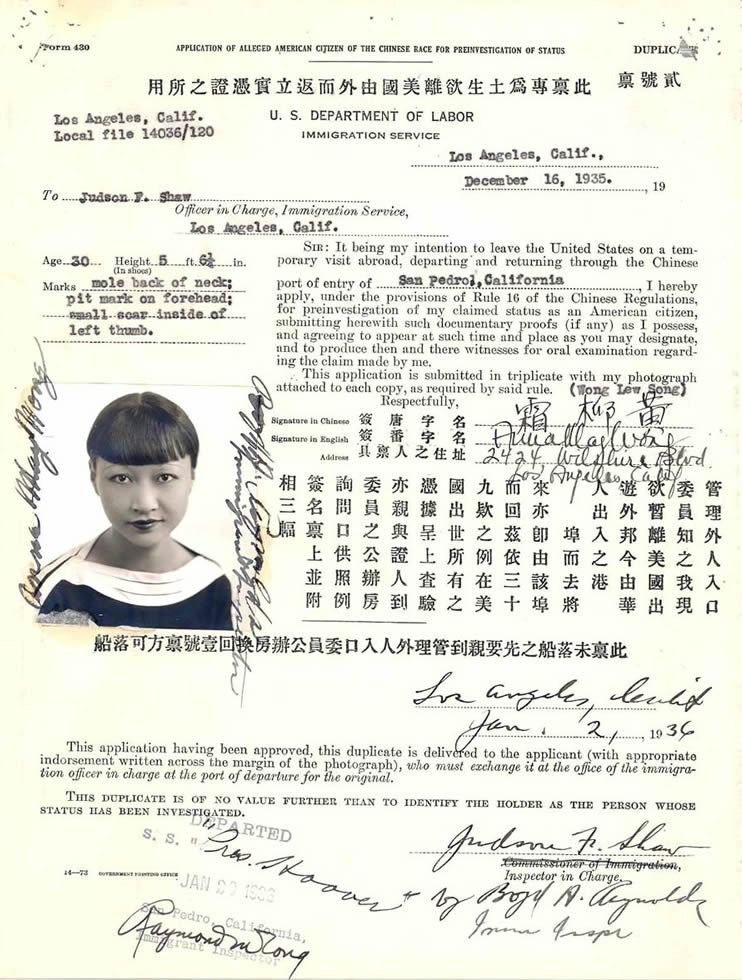 Form 430
APPLICATION OF ALLEGED AMERICAN CITIZEN OF THE CHINESE RACE FOR PREINVESTIGATION OF STATUS
DUPLICATE
此稟專爲土生欲離美國由外而返立實憑證之所用
貳號稟
Los Angeles, Calif.
Local file 14036/120
U. S. DEPARTMENT OF LABOR
IMMIGRATION SERVICE
Los Angeles, Calif.,
December 16, 1935. , 19
To Judson F. Shaw
Officer in Charge, Immigration Service,
Los Angeles, Calif.
Age 30 Height 5 ft. 6½ in.
(In shoes)
Marks mole back of neck;
pit mark on forehead;
small scar inside of
left thumb.
SIR: It being my intention to leave the United States on a tem-
porary visit abroad, departing and returning through the Chinese
port of entry of San Pedro, California, I hereby
apply, under the provisions of Rule 16 of the Chinese Regulations,
for preinvestigation of my claimed status as an American citizen,
submitting herewith such documentary proofs (if any) as I possess,
and agreeing to appear at such time and place as you may designate,
and to produce then and there witnesses for oral examination regard-
ing the claim made by me.
This application is submitted in triplicate with my photograph
attached to each copy, as required by said rule. (Wong Lew Song)
Respectfully,
Signature in Chinese 簽唐字名 黃柳霜
Signature in English 簽番字名 Anna May Wong
Address 具稟人之住址 2424, Wilshire Blvd.
Los Angeles, Calif.
Anna May Wong
Immigrant Inspector
管理外人入口
委員知之我現
欲暫離美國出
遊外邦今由華
人出入之港
埠而去將
來亦卽由該埠
而回茲依三十
九欵之例在美
國出世所有之
憑據呈上查驗
亦與證人到
委員之公辦房
詢問口供照例
簽名稟上並附
相三幅
此稟未落船之先要親到管理外人入口委員公辦房換回壹號稟方可落船
Los Angeles, Calif
Jan. 2, 1936
This application having been approved, this duplicate is delivered to the applicant (with appropriate
indorsement written across the margin of the photograph), who must exchange it at the office of the immigra-
tion officer in charge at the port of departure for the original.
THIS DUPLICATE IS OF NO VALUE FURTHER THAN TO IDENTIFY THE HOLDER AS THE PERSON WHOSE
STATUS HAS BEEN INVESTIGATED.
DEPARTED
S. S. "Pres. Hoover"
JAN 23 1936
San Pedro, California,
Immigrant Inspector
Raymond M Wong
Judson F. Shaw
Commissioner of Immigration,
Inspector in Charge.
by Boyd H. Reynolds
Imm Inspr
14—73 GOVERNMENT PRINTING OFFICE